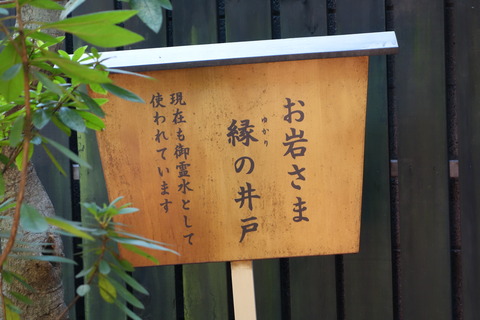 お岩さま
縁の井戸
ゆかり
現在も御霊水として
使われています